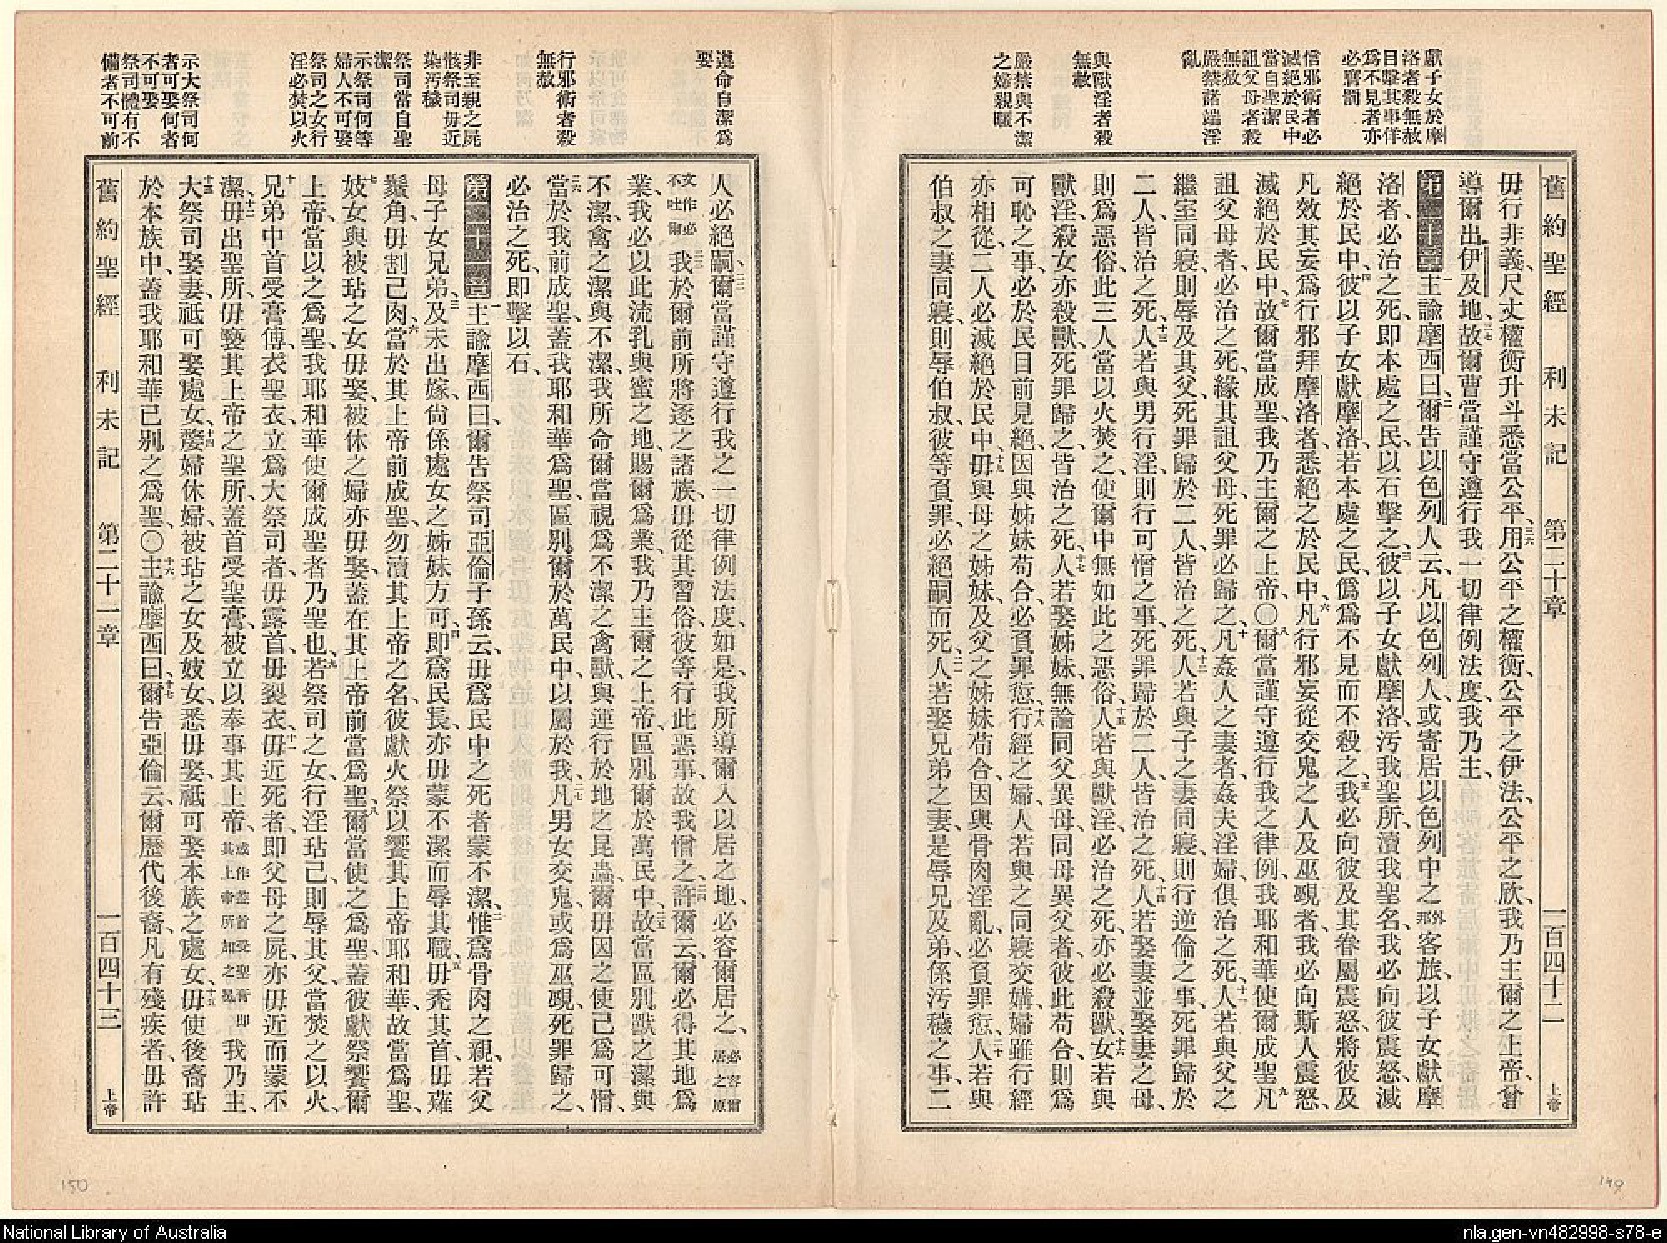 獻子女於摩
洛者殺無赦
目擊其事佯
爲不見者亦
必窘罰
信邪術者必
滅絕於民中
當自聖潔
詛父母者殺
無赦
嚴禁諸端淫
亂
與獸淫者殺
無赦
嚴禁與不潔
之婦親暱
舊約聖經 利未記 第二十章 一百四十二 上帝
毋行非義、尺丈權衡升斗悉當公平、三六用公平之權衡、公平之伊法、公平之欣、我乃主爾之上帝、曾
導爾出伊及地、三七故爾曹當謹守遵行我一切律例法度、我乃主、
第二十章 一主諭摩西曰、二爾告以色列人云、凡以色列人、或寄居以色列中之外邦客旅、以子女獻摩
洛者、必治之死、即本處之民、以石擊之、三彼以子女獻摩洛、汚我聖所、瀆我聖名、我必向彼震怒、滅
絕於民中、四彼以子女獻摩洛、若本處之民、僞爲不見而不殺之、五我必向彼及其眷屬震怒、將彼及
凡效其妄爲、行邪拜摩洛者、悉絕之於民中、六凡行邪妄從交鬼之人及巫覡者、我必向斯人震怒、
滅絕於民中、七故爾當成聖、我乃主爾之上帝、〇八爾當謹守遵行我之律例、我耶和華使爾成聖、九凡
詛父母者、必治之死、緣其詛父母、死罪必歸之、十凡姦人之妻者、姦夫淫婦、俱治之死、十一人若與父之
繼室同寢、則辱及其父、死罪歸於二人、皆治之死、十二人若與子之妻同寢、則行逆倫之事、死罪歸於
二人、皆治之死、十三人若與男行淫、則行可憎之事、死罪歸於二人、皆治之死、十四人若娶妻、並娶妻之母、
則爲惡俗、此三人當以火焚之、使爾中無如此之惡俗、十五人若與獸淫、必治之死、亦必殺獸、十六女若與
獸淫、殺女亦殺獸、死罪歸之、皆治之死、十七人若娶姊妹、無論同父異母、同母異父者、彼此苟合、則爲
可恥之事、必於民目前見絕、因與姊妹苟合、必負罪愆、十八行經之婦、人若與之同寢交媾、婦雖行經
亦相從、二人必滅絕於民中、十九毋與母之姊妹、及父之姊妹苟合、因與骨肉淫亂、必負罪愆、二十人若與
伯叔之妻同寢、則辱伯叔、彼等負罪、必絕嗣而死、二一人若娶兄弟之妻、是辱兄及弟、係汚穢之事、二
遵命自潔爲
要
行邪術者殺
無赦
非至親之屍
骸祭司毋近
染汚穢
祭司當自聖
潔
示祭司何等
婦人不可娶
祭司之女行
淫必焚以火
示大祭司何
者可娶何者
不可娶
祭司體有不
備者不可前
人必絕嗣、二二爾當謹守遵行我之一切律例法度、如是、我所導爾入以居之地、必容爾居之、必容爾居之原
文作必不吐爾 二三我於爾前所將逐之諸族、毋從其習俗、彼等行此惡事、故我憎之、二四許爾云、爾必得其地爲
業、我必以此流乳與蜜之地、賜爾爲業、我乃主爾之上帝、區別爾於萬民中、二五故當區別獸之潔與
不潔、禽之潔與不潔、我所命爾當視爲不潔之禽獸、與連行於地之昆蟲、爾毋因之使己爲可憎、
二六當於我前成聖、蓋我耶和華爲聖、區別爾於萬民中、以屬於我、二七凡男女交鬼、或爲巫覡、死罪歸之、
必治之死、即擊以石、
第二十一章 一主諭摩西曰、爾告祭司亞倫子孫云、毋爲民中之死者蒙不潔、二惟爲骨肉之親、若父
母子女兄弟、三及未出嫁尙係處女之姊妹方可、四即爲民長、亦毋蒙不潔而辱其職、五毋禿其首、毋薙
鬚角、毋割己肉、六當於其上帝前成聖、勿瀆其上帝之名、彼獻火祭以饗其上帝耶和華、故當爲聖、
七妓女與被玷之女毋娶、被休之婦亦毋娶、蓋在其上帝前當爲聖、八爾當使之爲聖、蓋彼獻祭饗爾
上帝、當以之爲聖、我耶和華使爾成聖者乃聖也、九若祭司之女、行淫玷己、則辱其父、當焚之以火、
十兄弟中首受膏、傅衣聖衣、立爲大祭司者、毋露首、毋裂衣、十一毋近死者、即父母之屍、亦毋近而蒙不
潔、十二毋出聖所、毋褻其上帝之聖所、蓋首受聖膏、被立以奉事其上帝、或作蓋首受聖膏即其上帝所加之冕 我乃主、
十三大祭司娶妻、祗可娶處女、十四嫠婦休婦、被玷之女及妓女、悉毋娶、祗可娶本族之處女、十五毋使後裔玷
於本族中、蓋我耶和華已別之爲聖、〇十六主諭摩西曰、十七爾告亞倫云、爾歷代後裔、凡有殘疾者、毋許
舊約聖經 利未記 第二十一章 一百四十三 上帝
150
149
National Library of Australia
nla.gen-vn482998-s78-e